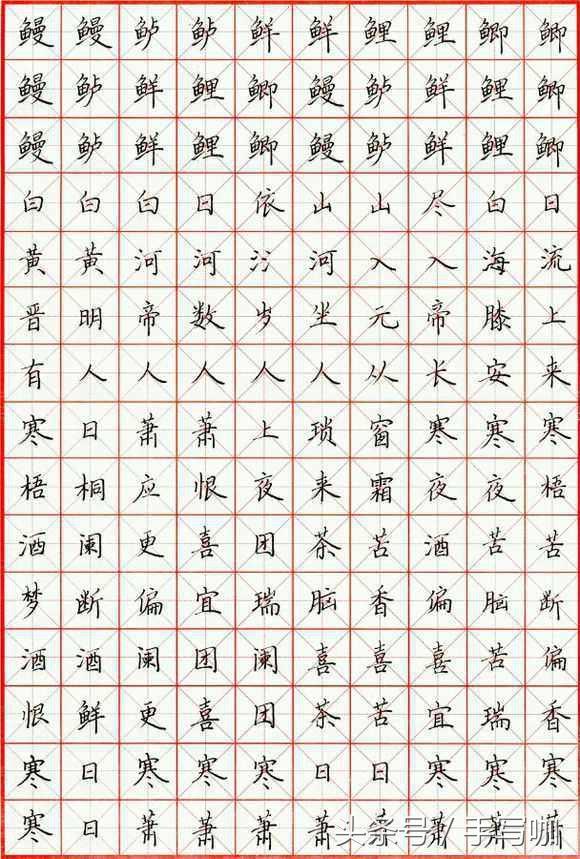 鳗鳗鲈鲈鲜鲜鲤鲤鲫鲫
鳗鲈鲜鲤鲫鳗鲈鲜鲤鲫
鳗鲈鲜鲤鲫鳗鲈鲜鲤鲫
白白白日依山山尽白日
黄黄河河氵河入入海流
晋明帝数岁坐元帝膝上
有人人人人人从长安来
寒日萧萧上琐窗寒寒寒
梧桐应恨夜来霜夜夜梧
酒阑更喜团茶苦酒苦苦
梦断偏宜瑞脑香偏脑断
酒酒阑团阑喜喜喜苦偏
恨鲜更喜团茶苦宜瑞香
寒日寒寒寒日日寒寒寒
寒日萧萧萧萧萧萧萧
头条号/手写咖